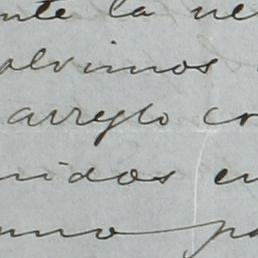 nte la ne
olvimos
arreglo co
nidos en
mno pa